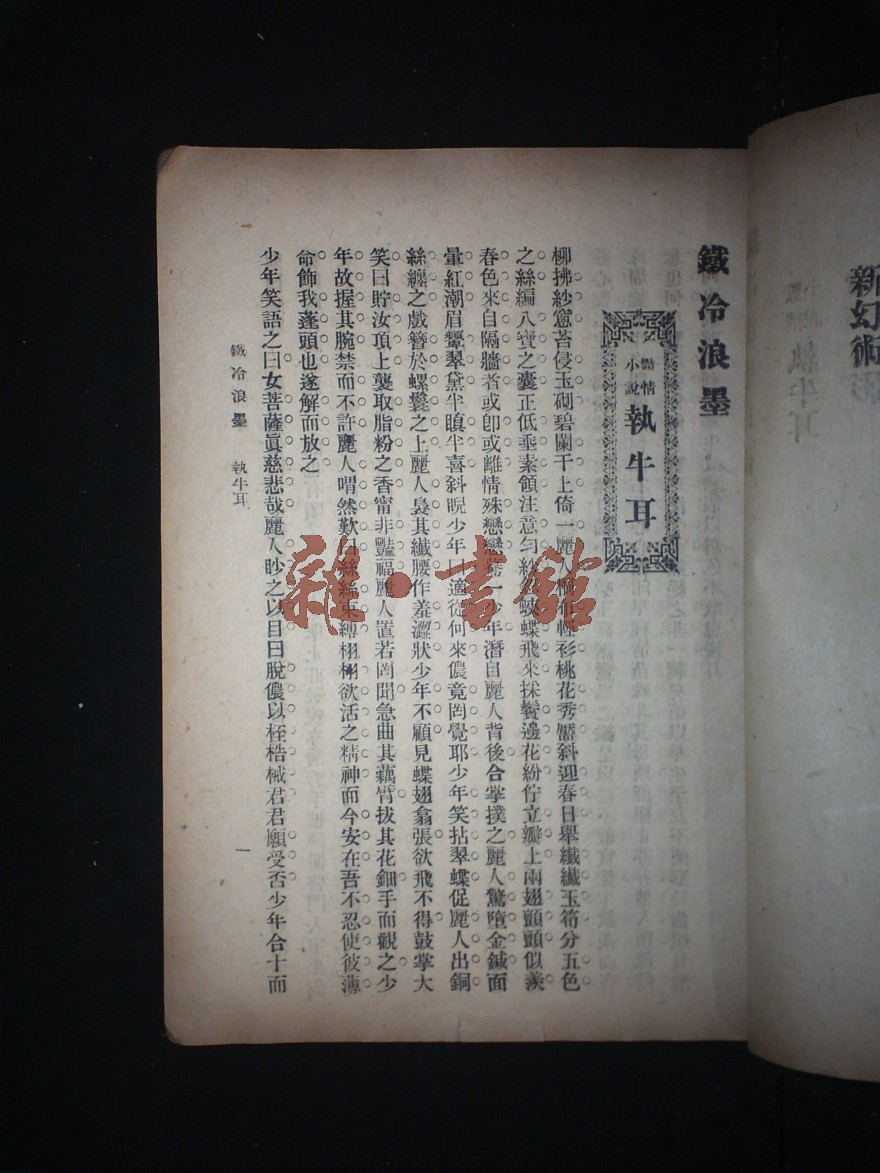 新幻術
鐵冷浪墨
豔情
小說
執牛耳
柳拂紗窗苔侵玉砌碧闌干上倚一麗人輕衫桃花秀靨斜迎春日舉纖纖玉筍分五色
之絲編八寶之囊正低垂素領注意勻絲忽蛺蝶飛來採鬢邊花紛佇立瓣上兩翅顫顫似羨
春色來自隔牆者或卽或離情殊戀戀一少年潛自麗人背後合掌撲之麗人驚墮金鍼面
暈紅潮眉顰翠黛半瞋半喜斜睨少年適從何來儂竟罔覺耶少年笑拈翠蝶促麗人出銅
絲纏之戲簪於螺鬟之上麗人裊其纖腰作羞澀狀少年不顧見蝶翅翕張欲飛不得鼓掌大
笑曰貯汝頂上襲取脂粉之香甯非豔福麗人置若罔聞急曲其藕臂拔其花鈿手而觀之少
年故握其腕禁而不許麗人喟然歎曰絲絲束縛栩栩欲活之精神而今安在吾不忍使彼薄
命飾我蓬頭也遂解而放之
少年笑語之曰女菩薩眞慈悲哉麗人眇之以目曰脫儂以桎梏械君君願受否少年合十而
鐵冷浪墨 執牛耳
一
雜·書館